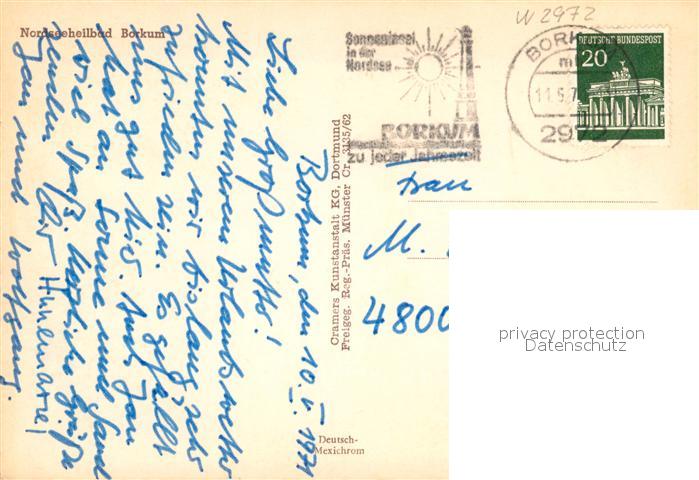 Nordseeheilbad Borkum
W 2972
Sonneninsel
in der
Nordsee
BORKUM
zu jeder Jahreszeit
BORKUM
2972
DEUTSCHE BUNDESPOST
20
Borkum, den 10.V.1971
Liebe Großmutti!
Mit unserem Urlaubswetter
konnten wir bislang sehr
zufrieden sein. Es gefällt
uns gut hier. Auch Jan
hat an Sonne und Sand
viel Spaß. Herzliche Grüße
senden Dir Annemarie,
Jan und Wolfgang.
Cramers Kunstanstalt KG, Dortmund
Freigeg. Reg.-Präs. Münster Cr. 3135/62
Deutsch-
Mexichrom
Frau
M.
4800
privacy protection
Datenschutz